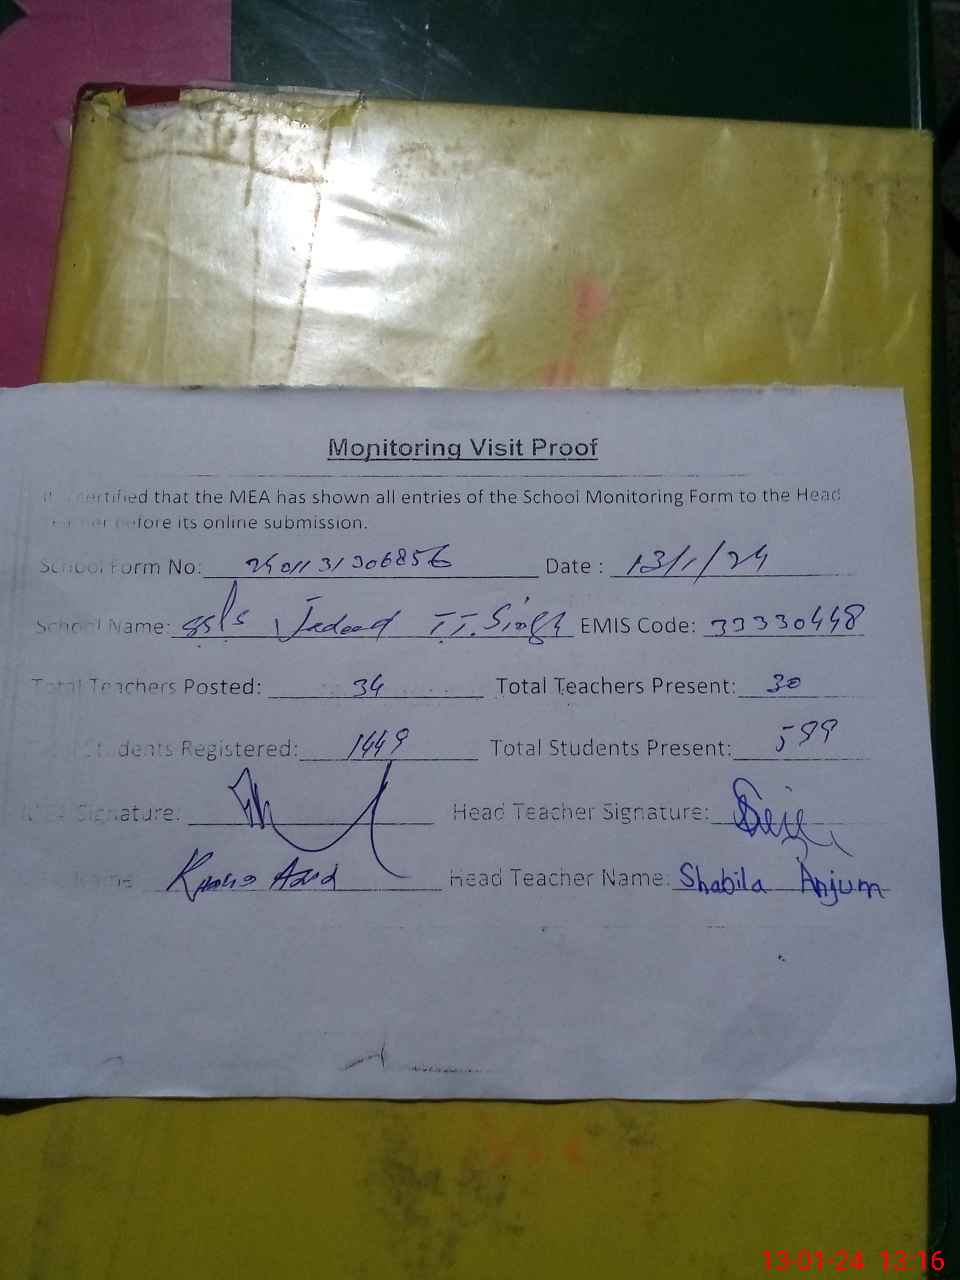 Monitoring Visit Proof
It is certified that the MEA has shown all entries of the School Monitoring Form to the Head
Teacher before its online submission.
School Form No: Date : 13/1/24
School Name: T.T.Singh EMIS Code: 33330448
Total Teachers Posted: 34 Total Teachers Present: 30
Total Students Registered: 1449 Total Students Present: 599
MEA Signature: Head Teacher Signature:
Name Head Teacher Name: Shabila Anjum
13-01-24 13:16